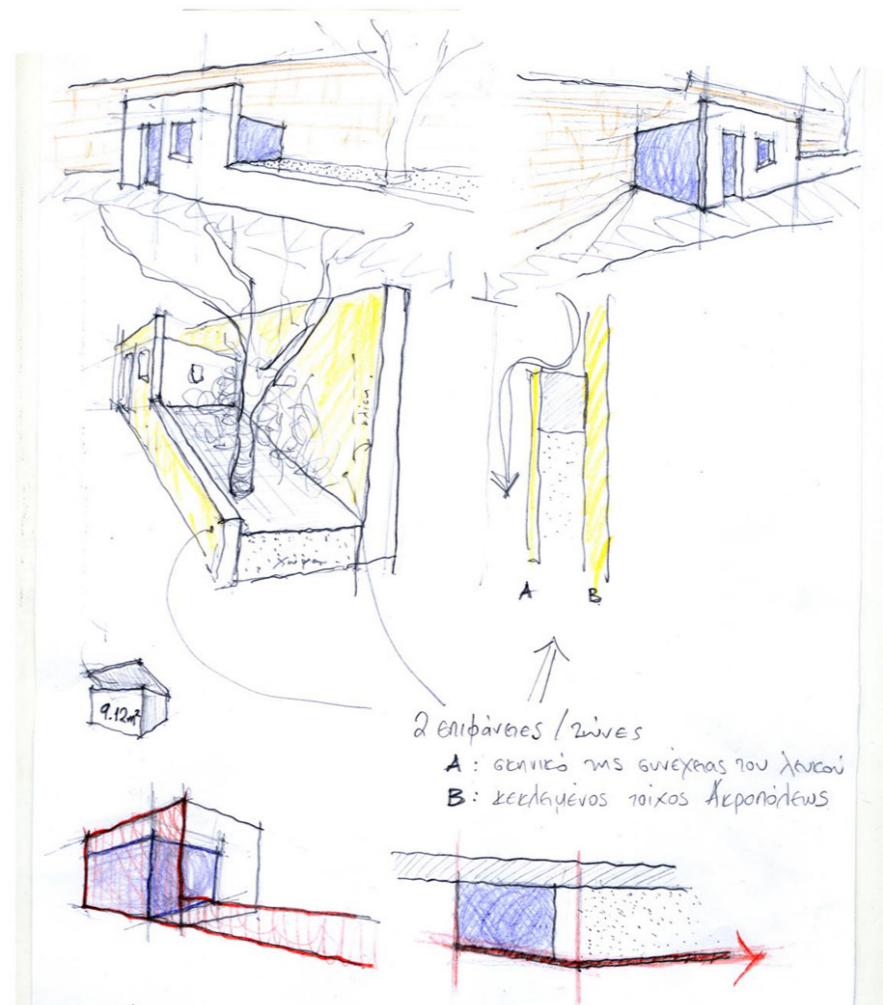 κλίση
χώμα
A
B
9.12m²
2 επιφάνειες / ζώνες
A: σκηνικό της συνέχειας του λευκού
B: κεκλειμένος τοίχος Ακροπόλεως